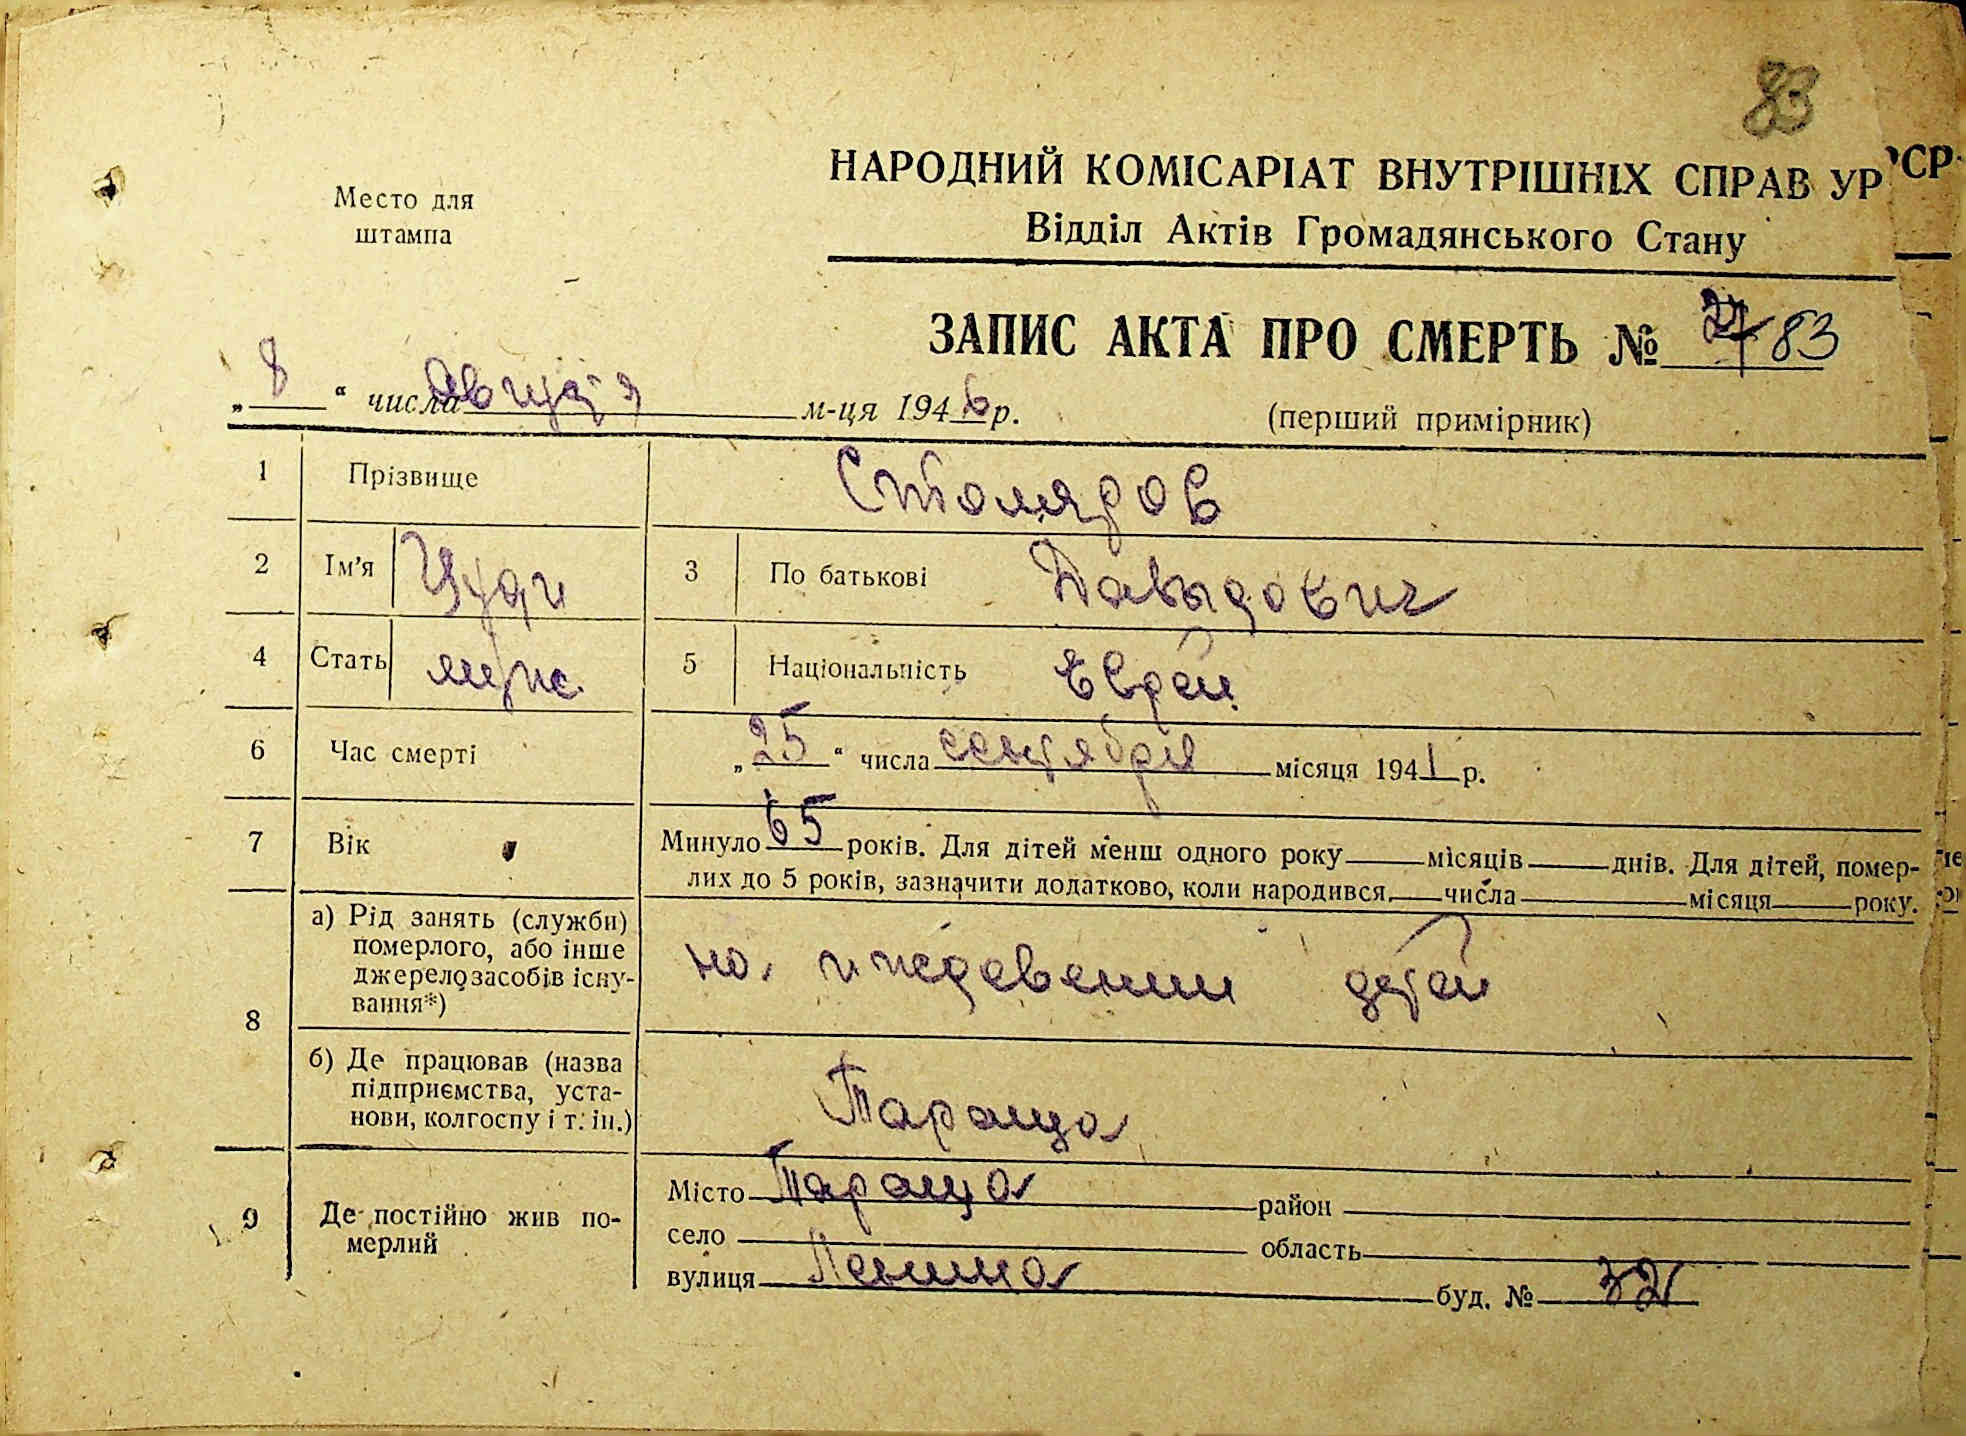 83
Место для
штампа
НАРОДНИЙ КОМІСАРІАТ ВНУТРІШНІХ СПРАВ УР
Відділ Актів Громадянського Стану
ЗАПИС АКТА ПРО СМЕРТЬ № 83
„8“ числа августа м-ця 1946 р. (перший примірник)
1 Прізвище Столяров
2 Ім’я 3 По батькові Давыдович
4 Стать муж. 5 Національність Еврей
6 Час смерті „25“ числа сентября місяця 1941 р.
7 Вік Минуло 65 років. Для дітей менш одного року місяців днів. Для дітей, помер-
лих до 5 років, зазначити додатково, коли народився числа місяця року.
8 а) Рід занять (служби)
померлого, або інше
джерело засобів існу-
вання*) на иждевении детей
б) Де працював (назва
підприємства, уста-
нови, колгоспу і т. ін.) Тараща
9 Де постійно жив по-
мерлий
Місто Тараща район
село область
вулиця Ленина буд. № 32